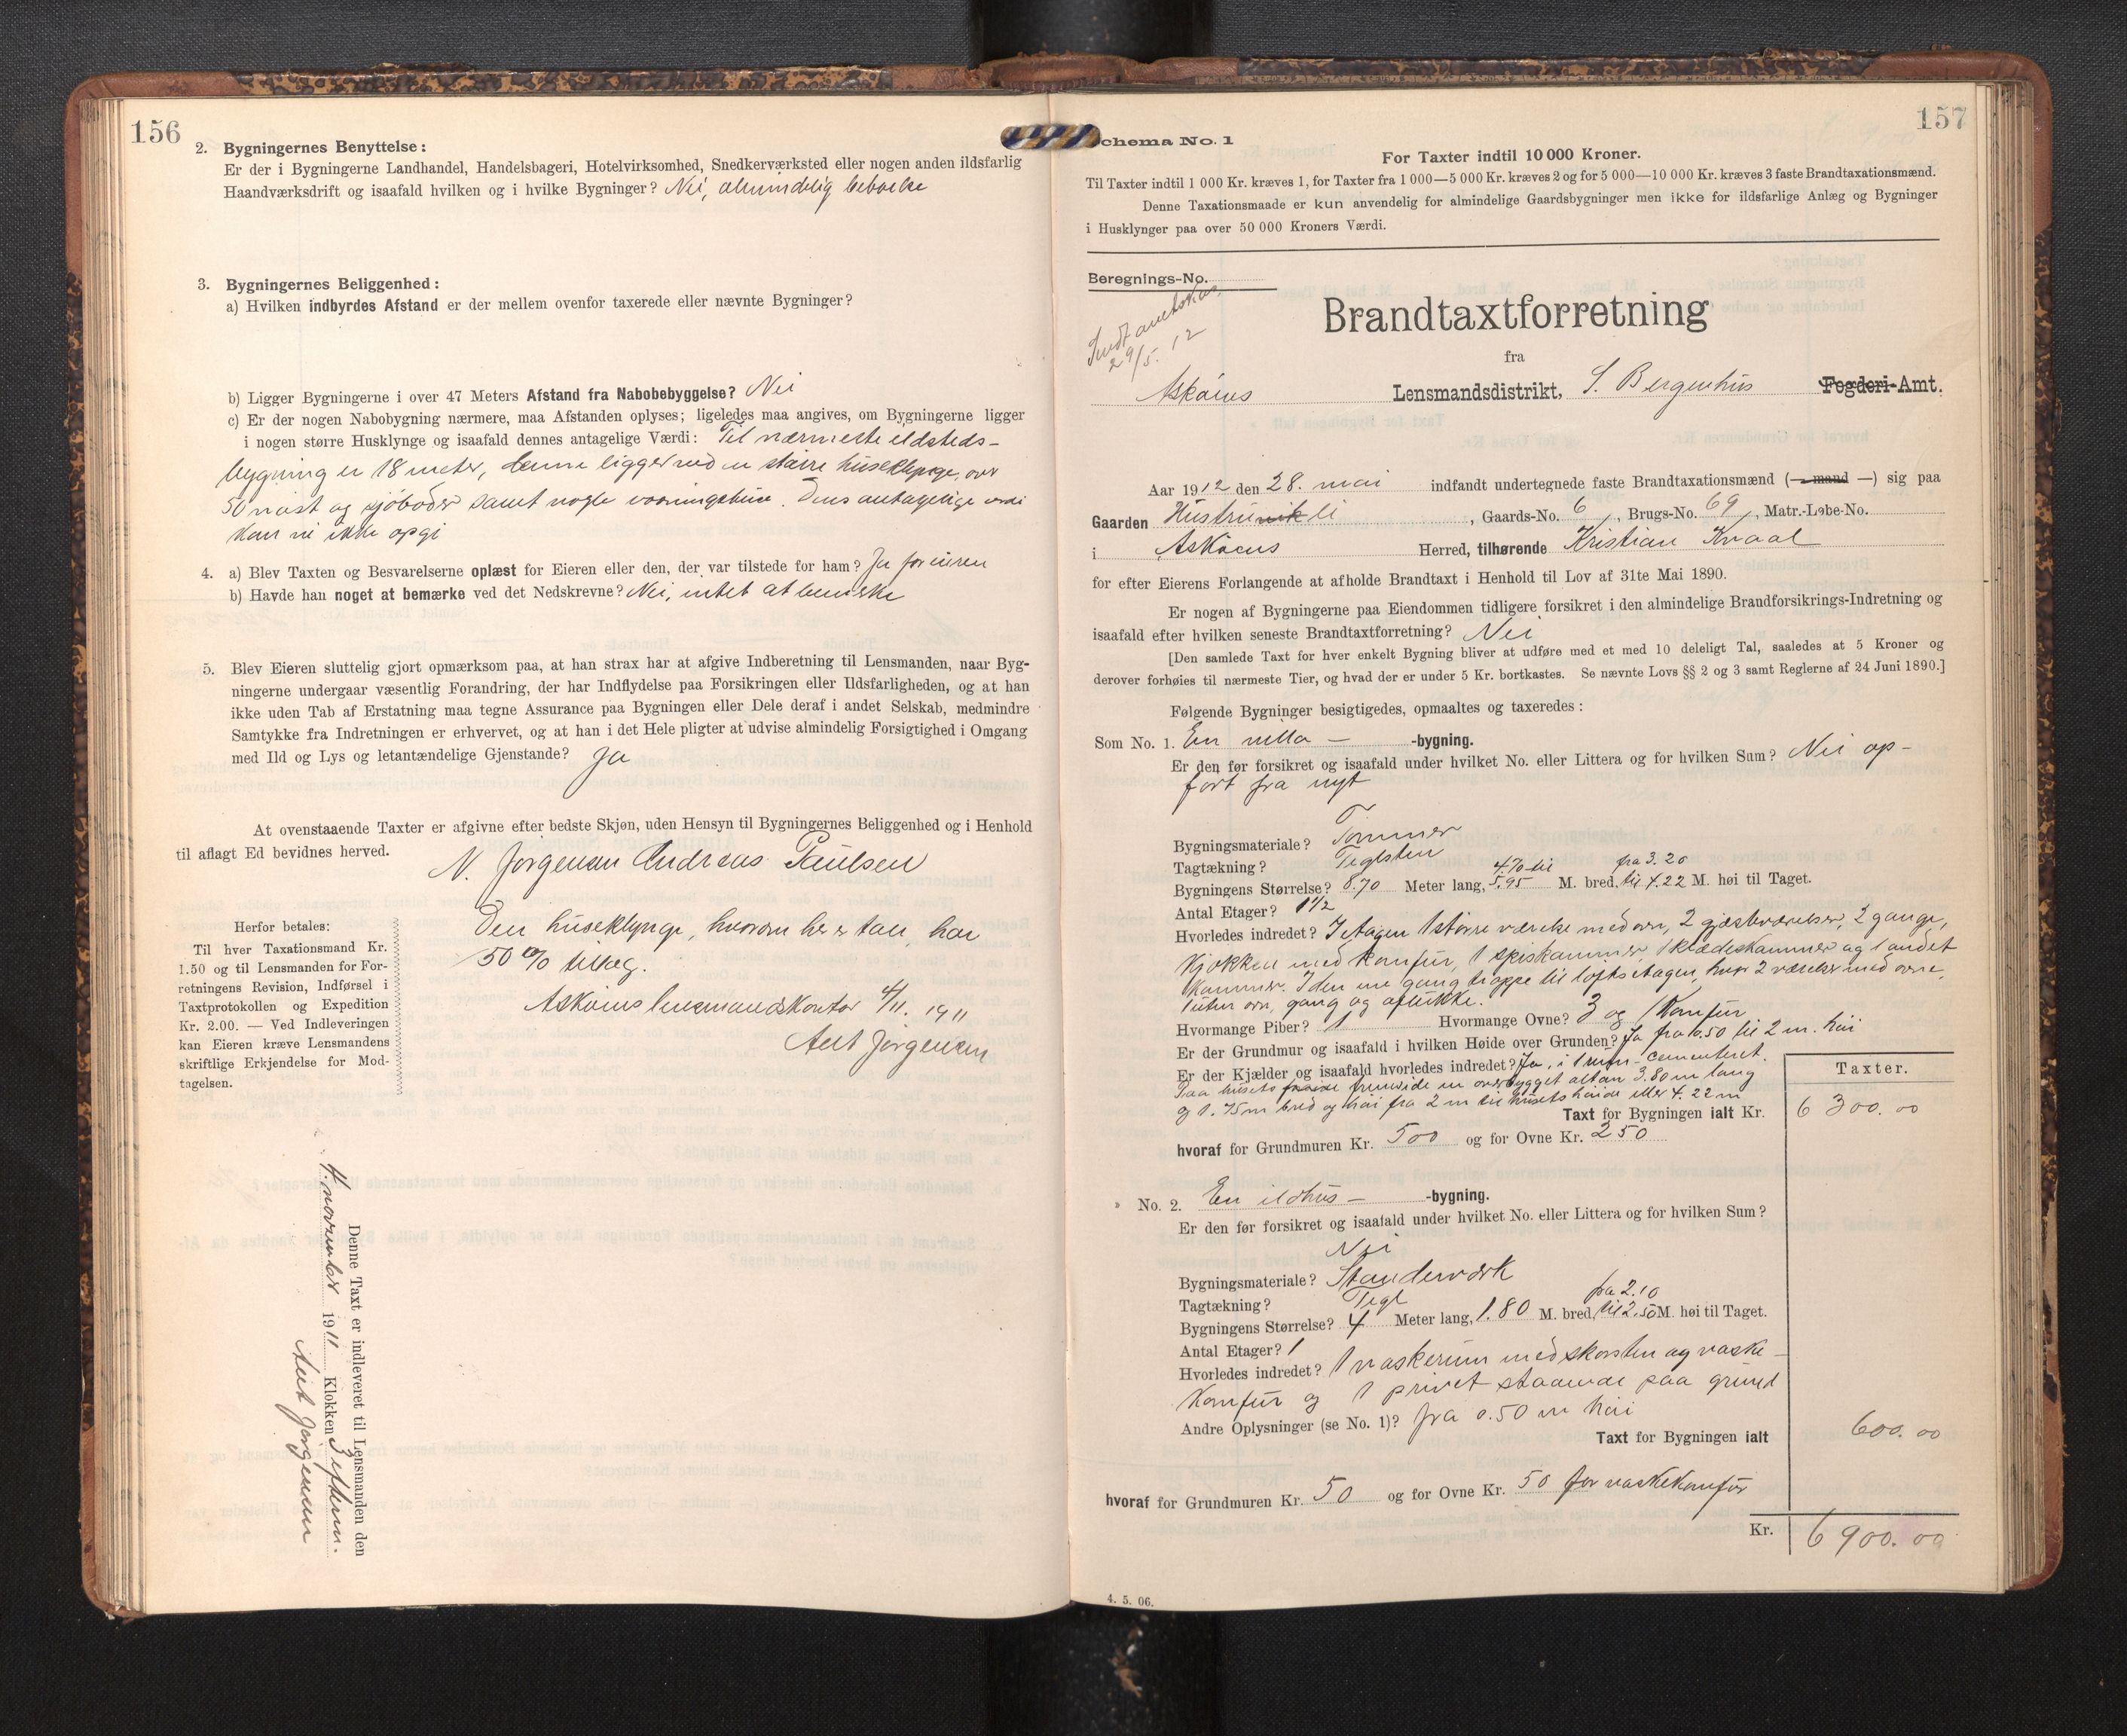 156
2. Bygningernes Benyttelse:
Er der i Bygningerne Landhandel, Handelsbageri, Hotelvirksomhed, Snedkerværksted eller nogen anden ildsfarlig
Haandværksdrift og isaafald hvilken og i hvilke Bygninger? Nei, almindelig beboelse
3. Bygningernes Beliggenhed:
a) Hvilken indbyrdes Afstand er der mellem ovenfor taxerede eller nævnte Bygninger?
b) Ligger Bygningerne i over 47 Meters Afstand fra Nabobebyggelse? Nei
c) Er der nogen Nabobygning nærmere, maa Afstanden oplyses; ligeledes maa angives, om Bygningerne ligger
i nogen større Husklynge og isaafald dennes antagelige Værdi: Til nærmeste ildsteds-
bygning er 18 meter, denne ligger ved en større huseklynge, over
50 nøst og sjøboder samt nogle vaaningshuse. Dens antagelige verdi
kan vi ikke opgi
4. a) Blev Taxten og Besvarelserne oplæst for Eieren eller den, der var tilstede for ham? Ja for eieren
b) Havde han noget at bemærke ved det Nedskrevne? Nei, intet at bemerke
5. Blev Eieren sluttelig gjort opmærksom paa, at han strax har at afgive Indberetning til Lensmanden, naar Byg-
ningerne undergaar væsentlig Forandring, der har Indflydelse paa Forsikringen eller Ildsfarligheden, og at han
ikke uden Tab af Erstatning maa tegne Assurance paa Bygningen eller Dele deraf i andet Selskab, medmindre
Samtykke fra Indretningen er erhvervet, og at han i det Hele pligter at udvise almindelig Forsigtighed i Omgang
med Ild og Lys og letantændelige Gjenstande? Ja
At ovenstaaende Taxter er afgivne efter bedste Skjøn, uden Hensyn til Bygningernes Beliggenhed og i Henhold
til aflagt Ed bevidnes herved.
N. Jørgensen Andreas Paulsen
Den huseklynge, hvorom her er tale, har
50 % tillæg.
Askøens lensmandskontor 4/11. 1911
Aut Jørgensen
Herfor betales:
Til hver Taxationsmand Kr.
1.50 og til Lensmanden for For-
retningens Revision, Indførsel i
Taxtprotokollen og Expedition
Kr. 2.00. — Ved Indleveringen
kan Eieren kræve Lensmandens
skriftlige Erkjendelse for Mod-
tagelsen.
Denne Taxt er indleveret til Lensmanden den
4. november 1911 Klokken 3 efterm.
Aut Jørgensen
157
chema No. 1
For Taxter indtil 10 000 Kroner.
Til Taxter indtil 1 000 Kr. kræves 1, for Taxter fra 1 000—5 000 Kr. kræves 2 og for 5 000—10 000 Kr. kræves 3 faste Brandtaxationsmænd.
Denne Taxationsmaade er kun anvendelig for almindelige Gaardsbygninger men ikke for ildsfarlige Anlæg og Bygninger
i Husklynger paa over 50 000 Kroners Værdi.
Beregnings-No.
29/5. 12
Brandtaxtforretning
fra
Askøens Lensmandsdistrikt, S. Bergenhus Fogderi-Amt.
Aar 1912 den 28. mai indfandt undertegnede faste Brandtaxationsmænd (— mand —) sig paa
Gaarden , Gaards-No. 6, Brugs-No. 69, Matr.-Løbe-No.
i Askøens Herred, tilhørende Kristian Kvaal
for efter Eierens Forlangende at afholde Brandtaxt i Henhold til Lov af 31te Mai 1890.
Er nogen af Bygningerne paa Eiendommen tidligere forsikret i den almindelige Brandforsikrings-Indretning og
isaafald efter hvilken seneste Brandtaxtforretning? Nei
[Den samlede Taxt for hver enkelt Bygning bliver at udføre med et med 10 deleligt Tal, saaledes at 5 Kroner og
derover forhøies til nærmeste Tier, og hvad der er under 5 Kr. bortkastes. Se nævnte Lovs §§ 2 og 3 samt Reglerne af 24 Juni 1890.]
Følgende Bygninger besigtigedes, opmaaltes og taxeredes:
Som No. 1. En villa — -bygning.
Er den før forsikret og isaafald under hvilket No. eller Littera og for hvilken Sum? Nei op-
ført fra nyt
Bygningsmateriale? Tømmer
Tagtækning? Teglsten
Bygningens Størrelse? 8.70 Meter lang, 4.70 til 5.95 M. bred, fra 3.20 til 4.22 M. høi til Taget.
Antal Etager? 1 1/2
Hvorledes indredet? I etagen 1 større værelse med ovn, 2 gjæsteværelser, 2 gange,
kjøkken med komfur, 1 spiskammer, 1 klædeskammer og 1 andet
kammer. I den ene gang trappe til loftsetagen, hvor 2 værelser med ovne,
1 uten ovn, gang og aflukke.
Hvormange Piber? 1 Hvormange Ovne? 3 og 1 Komfur
Er der Grundmur og isaafald i hvilken Høide over Grunden? Ja fra 0.50 til 2 m. høi
Er der Kjælder og isaafald hvorledes indredet? Ja, i 1 rum - cementeret.
Paa husets fremside en overbygget altan 3.80 m lang
og 1.75 m bred og høi fra 2 m til husets høide eller 4.22 m
Taxter.
Taxt for Bygningen ialt Kr. 6 300.00
hvoraf for Grundmuren Kr. 500 og for Ovne Kr. 250
» No. 2. En ildhus — -bygning.
Er den før forsikret og isaafald under hvilket No. eller Littera og for hvilken Sum?
Nei
Bygningsmateriale? Standerværk
Tagtækning? Tegl
Bygningens Størrelse? 4 Meter lang, 1.80 M. bred, fra 2.10 til 2.50 M. høi til Taget.
Antal Etager? 1
Hvorledes indredet? 1 vaskerum med skorsten og vaske-
komfur og 1 privet staaende paa grund
Andre Oplysninger (se No. 1)? fra 0.50 m høi
Taxt for Bygningen ialt 600.00
hvoraf for Grundmuren Kr. 50 og for Ovne Kr. 50 for vaskekomfur
Kr. 6 900.00
4. 5. 06.